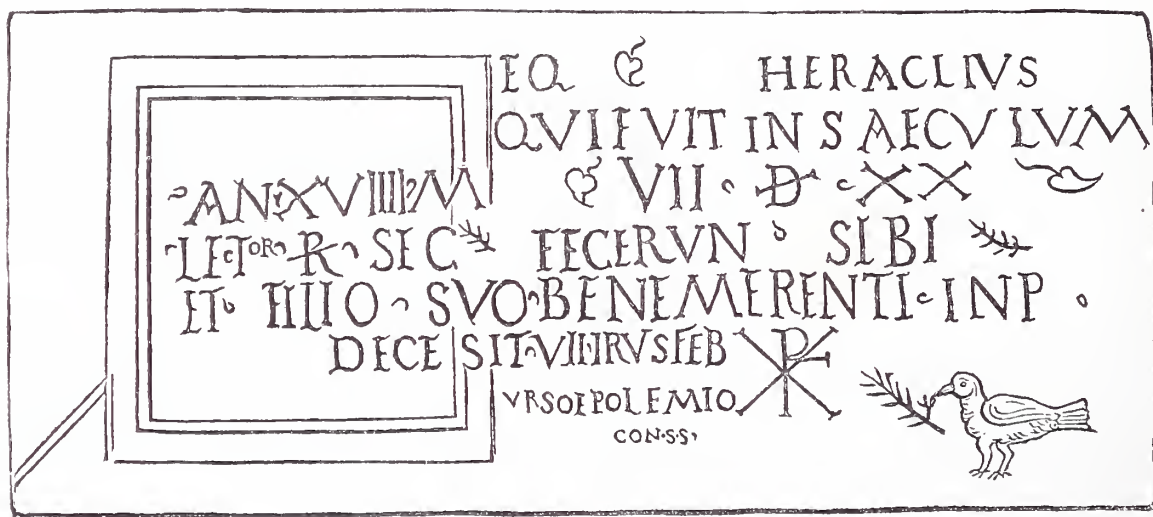 EQ HERACLIVS
QVI FVIT IN SAECVLVM
AN·XVIIII·M VII · D · XX
LECTOR R SEC FECERVN SIBI
ET FILIO SVO·BENEMERENTI·INP
DECESIT·VII·IRVS FEB
VRSO E POLEMIO
CON·S·S